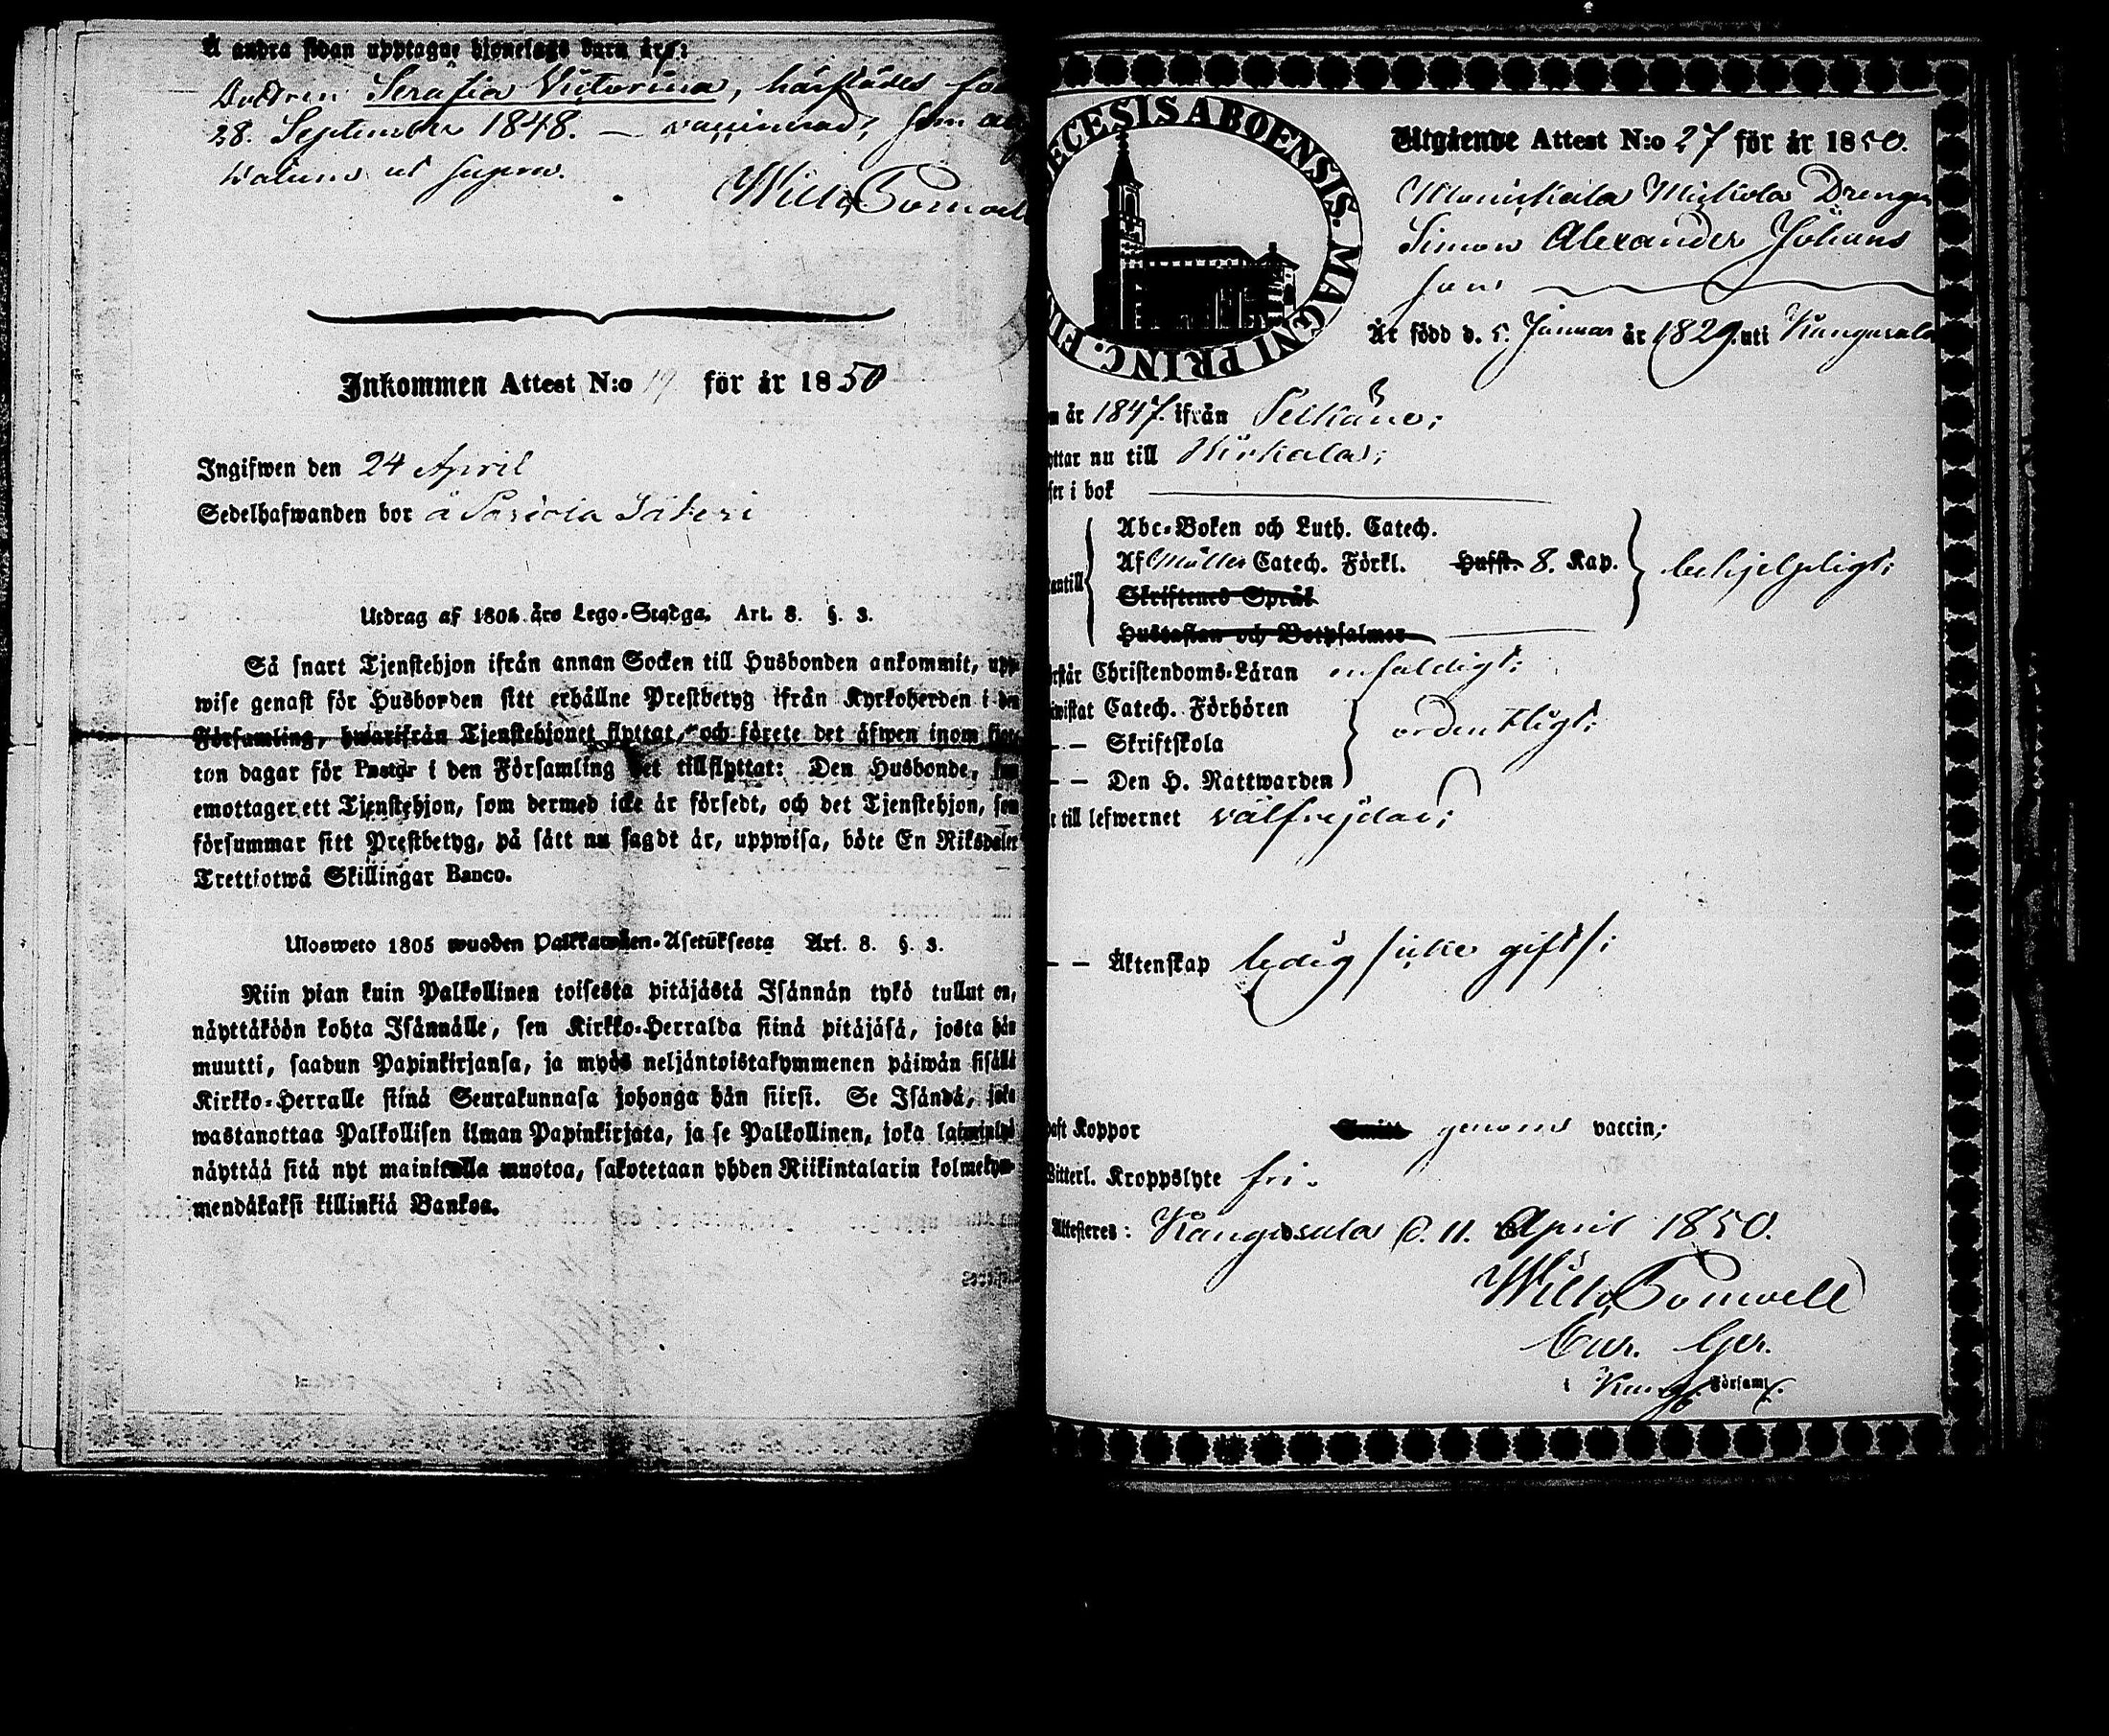 Å andra sidan upptagne hjonelags barn äro:
Dottren Serafia Victorina, härstädes
28. September 1848. — vaccinerad, som
Datum ut supra.
Wilh.
Inkommen Attest N:o 19 för år 1850
Ingifwen den 24 April
Sedelhafwanden bor å Säteri
Utdrag af 1805 års Lego-Stadga. Art. 8. §. 3.
Så snart Tjenstehjon ifrån annan Socken till Husbonden ankommit, upp-
wise genast för Husbonden sitt erhållne Prestbetyg ifrån Kyrkoherden i den
Församling, hwarifrån Tjenstehjonet flyttat, och förete det äfwen inom fjor-
ton dagar för Pastor i den Församling det tillflyttat: Den Husbonde, som
emottager ett Tjenstehjon, som dermed icke är försedt, och det Tjenstehjon, som
försummar sitt Prestbetyg, på sätt nu sagdt är, uppwisa, böte En Riksdaler
Trettiotwå Skillingar Banco.
Ulosweto 1805 wuoden Palkkawäen-Asetuksesta Art. 8. §. 3.
Niin pian kuin Palkollinen toisesta pitäjästä Isännän tykö tullut on,
näyttäköön kohta Isännälle, sen Kirkko-Herralda siinä pitäjäsä, josta hän
muutti, saadun Papinkirjansa, ja myös neljäntoistakymmenen päiwän sisällä
Kirkko-Herralle siinä Seurakunnasa johonga hän siirsi. Se Isändä, joka
wastanottaa Palkollisen ilman Papinkirjata, ja se Palkollinen, joka laiminlyö
näyttää sitä nyt mainitulla muotoa, sakotetaan yhden Riikintalarin kolmekym-
mendäkaksi killinkiä Bankoa.
ECESIS ABOENSIS. MAGNI PRINC. FI
Utgående Attest N:o 27 för år 1850.
Drengen
Simon Alexander Johans
son
Är född d. 5. Januar år 1829. uti Kangasala
år 1847. ifrån Pelkäne;
ttar nu till Kirkala;
ser i bok
Abc-Boken och Luth. Catech.
Af Möller Catech. Förkl. Hufst. 8. Kap. behjelpligt;
antill
Skriftenes Språk
Hustaflan och Botpsalmer
rstår Christendoms-Läran enfaldigt;
iwistat Catech. Förhören
— — Skriftskola ordentligt;
— — Den H. Nattwarden
till lefwernet välfrejdad;
— — Äktenskap ledig (icke gift);
haft Koppor Smitt genom vaccin;
Witterl. Kroppslyte fri.
Attesteres: Kangasala d. 11. April 1850.
Wilh.
Cur. Ger.
i Kang. Församl.